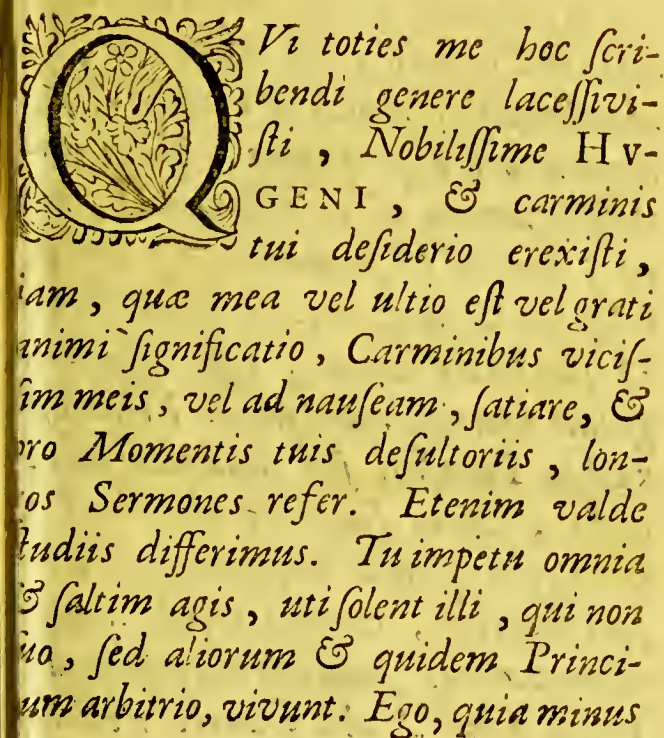 QVi toties me hoc ſcri-
bendi genere laceſſivi-
ſti , Nobiliſſime HV-
GENI , & carminis
tui deſiderio erexiſti ,
iam , quæ mea vel ultio eſt vel grati
animi ſignificatio , Carminibus viciſ-
ſim meis , vel ad nauſeam , ſatiare, &
pro Momentis tuis deſultoriis , lon-
gos Sermones refer. Etenim valde
ſtudiis differimus. Tu impetu omnia
& ſaltim agis , uti ſolent illi , qui non
ſuo , ſed aliorum & quidem Princi-
pum arbitrio, vivunt. Ego, quia minus